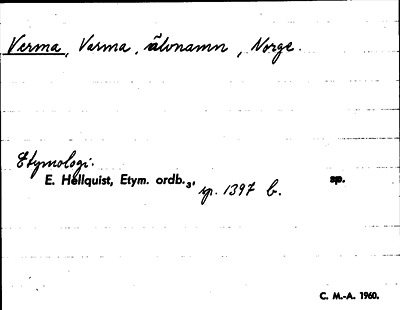 Verma, Varma, älvnamn, Norge.
Etymologi:
E. Hellquist, Etym. ordb.3, sp. 1397 b. sp.
C. M.-A. 1960.